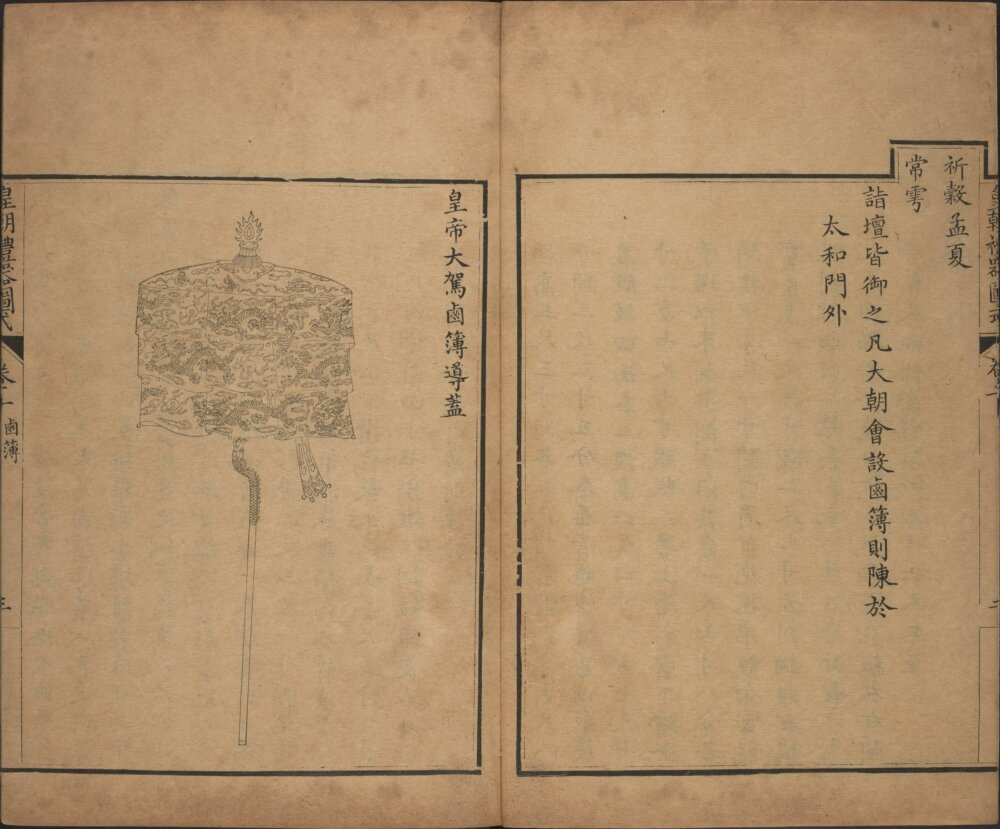 祈穀孟夏
常雩
詣壇皆御之凡大朝會設鹵簿則陳於
太和門外
皇帝大駕鹵簿導蓋
皇朝禮器圖式
卷十
鹵簿
三